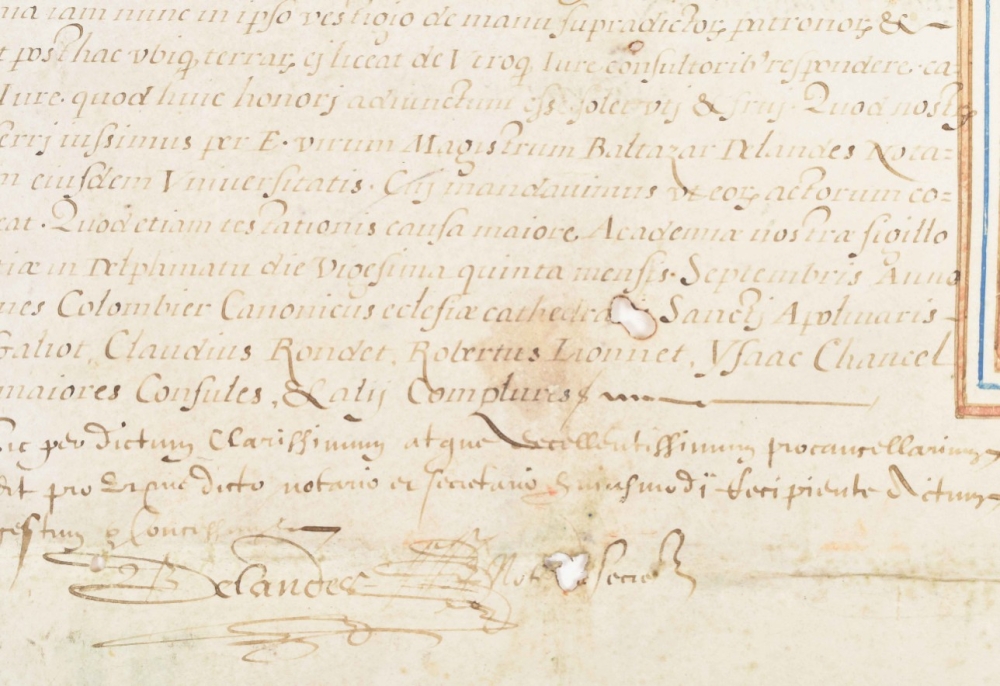 iam nunc in ipso vestigio de manu supradictor, patronor, &
posthac vbiq, terrar, ej liceat de Vtroq Iure consultorib' respondere. ea
Iure. quod huic honorj adiunctum esse solet vtj & fruj. Quod nost
ferrj iussimus per E. virum Magistrum Baltazar Delandes Nota=
eiusdem Vniuersitatis. Cuj mandauimus vt eor, actorum co=
eat. Quod etiam testationis causa maiore Academiæ nostræ sigillo
in Delphinatu die Vigesima quinta mensis. Septembris Anno
Colombier Canonicus eclesiæ Sanctj Apolinaris
Galiot, Claudius Rondet, Robertus Lionnet, Ysaac Chancel
maiores Consules, & alij Complures
sic per dictum Clarissimum atque Excellentissimum procancellarium
pro me dicto notario et secretario huiusmodj recipiente Actum
gestum
Delandes Not secre